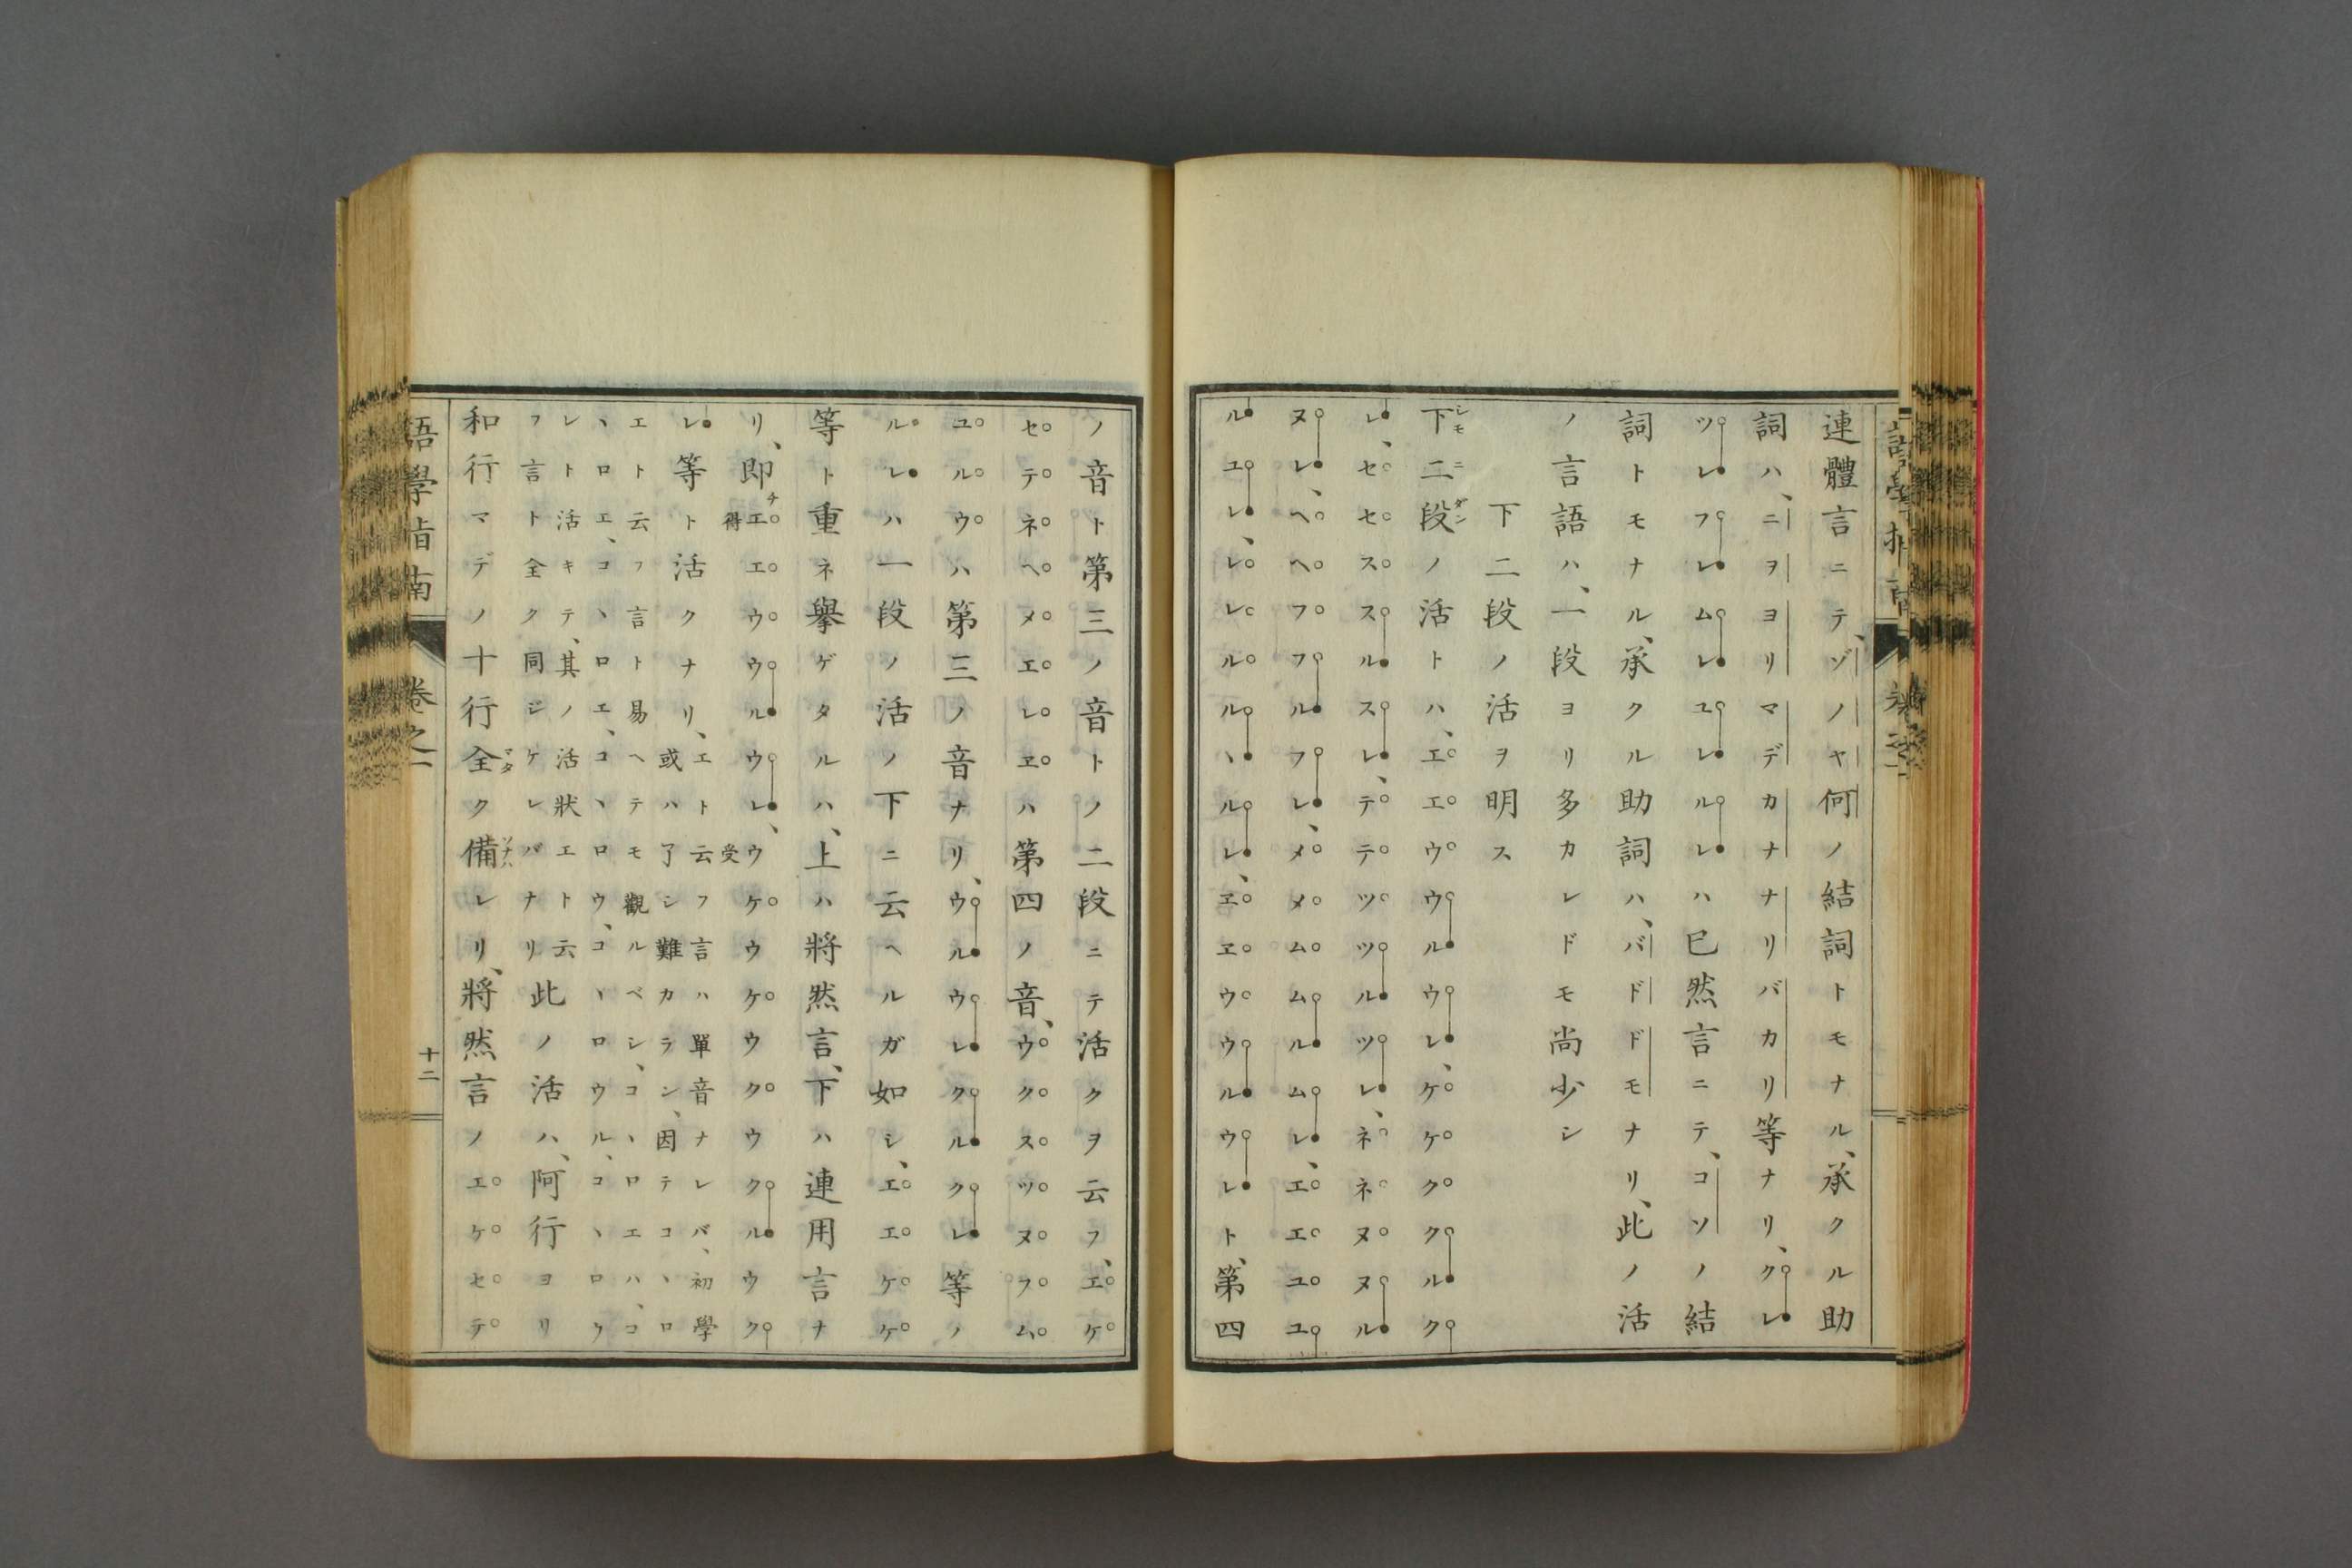 連體言ニテ、ゾノヤ何ノ結詞トモナル、承クル助
詞ハ、ニヲヨリマデカナナリバカリ等ナリ、クレ
ツレフレムレユレルレハ已然言ニテ、コソノ結
詞トモナル、承クル助詞ハ、バドドモナリ、此ノ活
ノ言語ハ、一段ヨリ多カレドモ尚少シ
下二段ノ活ヲ明ス
下二段ノ活トハ、エエウウルウレ、ケケククルク
レ、セセススルスレ、テテツツルツレ、ネネヌヌル
ヌレ、ヘヘフフルフレ、メメムムルムレ、エエユユ
ルユレ、レレルルヽルレ、ヱヱウウルウレト、第四
ノ音ト第三ノ音トノ二段ニテ活クヲ云フ、エケ
セテネヘメエレヱハ第四ノ音、ウクスツヌフム
ユルウハ第三ノ音ナリ、ウルウレクルクレ等ノ
ルレハ一段ノ活ノ下ニ云ヘルガ如シ、エエケケ
等ト重ネ擧ゲタルハ、上ハ將然言、下ハ連用言ナ
リ、即チ得エエウウルウレ、受ウケウケウクウクルウク
レ等ト活クナリ、エト云フ言ハ單音ナレバ、初學
或ハ了シ難カラン、因テコヽロ
エト云フ言ト易ヘテモ觀ルベシ、コヽロエハ、コ
ヽロエ、コヽロエ、コヽロウ、コヽロウル、コヽロウ
レト活キテ、其ノ活狀エト云
フ言ト全ク同ジケレバナリ此ノ活ハ、阿行ヨリ
和行マデノ十行全ク備レリ、將然言ノエケセテ
語學指南
卷之一
十二